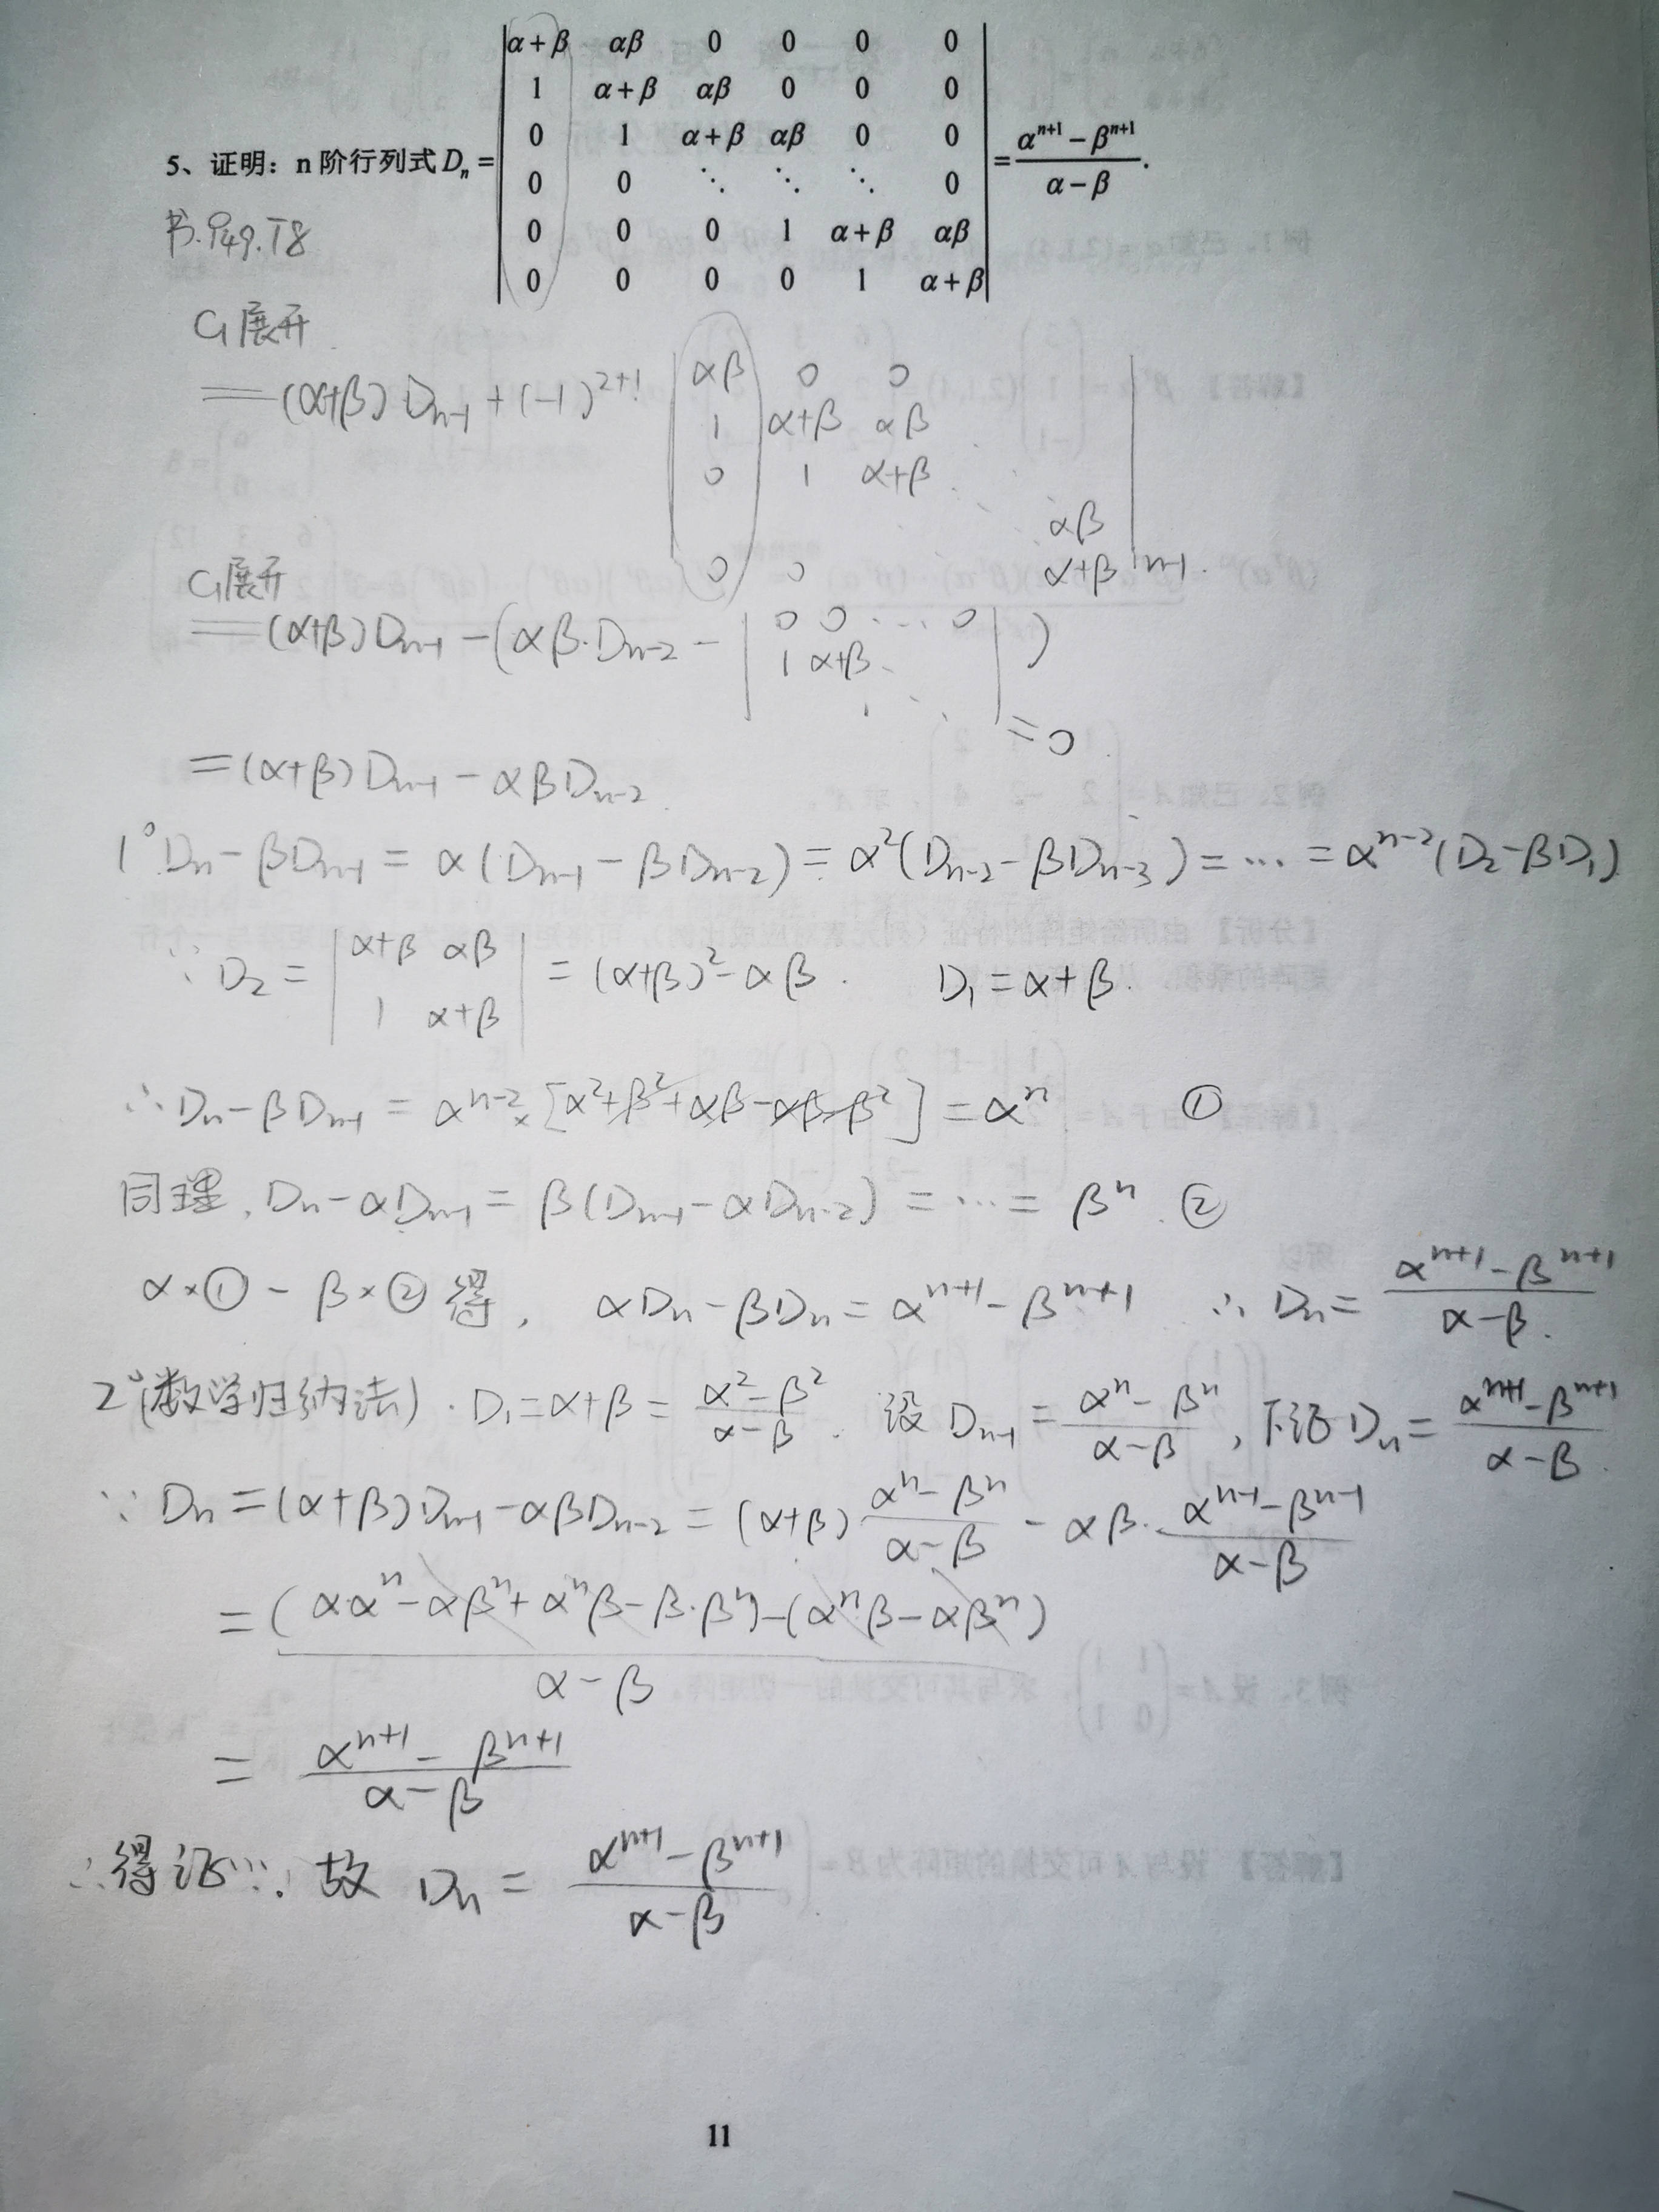 5、证明：n 阶行列式 Dₙ = | α+β αβ 0 0 0 0 | = (αⁿ⁺¹ − βⁿ⁺¹)/(α − β).
1 α+β αβ 0 0 0
0 1 α+β αβ 0 0
0 0 ⋱ ⋱ ⋱ 0
0 0 0 1 α+β αβ
0 0 0 0 1 α+β
书.P49.T8
C₁展开
= (α+β) Dₙ₋₁ + (−1)²⁺¹ | αβ 0 0
1 α+β αβ
0 1 α+β
αβ
0 0 α+β | n−1.
C₁展开
= (α+β)Dₙ₋₁ − (αβ·Dₙ₋₂ − | 0 0 … 0 | )
1 α+β
= 0
= (α+β)Dₙ₋₁ − αβDₙ₋₂.
1° Dₙ − βDₙ₋₁ = α(Dₙ₋₁ − βDₙ₋₂) = α²(Dₙ₋₂ − βDₙ₋₃) = … = αⁿ⁻²(D₂ − βD₁)
∵ D₂ = | α+β αβ | = (α+β)² − αβ. D₁ = α+β.
1 α+β
∴ Dₙ − βDₙ₋₁ = αⁿ⁻² × [α²+β²+αβ−αβ−β²] = αⁿ ①
同理, Dₙ − αDₙ₋₁ = β(Dₙ₋₁ − αDₙ₋₂) = … = βⁿ. ②
α×① − β×② 得, αDₙ − βDₙ = αⁿ⁺¹ − βⁿ⁺¹ ∴ Dₙ = (αⁿ⁺¹ − βⁿ⁺¹)/(α − β).
2°(数学归纳法). D₁ = α+β = (α² − β²)/(α − β). 设 Dₙ₋₁ = (αⁿ − βⁿ)/(α − β), 下证 Dₙ = (αⁿ⁺¹ − βⁿ⁺¹)/(α − β).
∵ Dₙ = (α+β)Dₙ₋₁ − αβDₙ₋₂ = (α+β) (αⁿ − βⁿ)/(α − β) − αβ· (αⁿ⁻¹ − βⁿ⁻¹)/(α − β)
= ((α·αⁿ − αβⁿ + αⁿβ − β·βⁿ) − (αⁿβ − αβⁿ))/(α − β)
= (αⁿ⁺¹ − βⁿ⁺¹)/(α − β)
∴ 得证∵. 故 Dₙ = (αⁿ⁺¹ − βⁿ⁺¹)/(α − β).
11